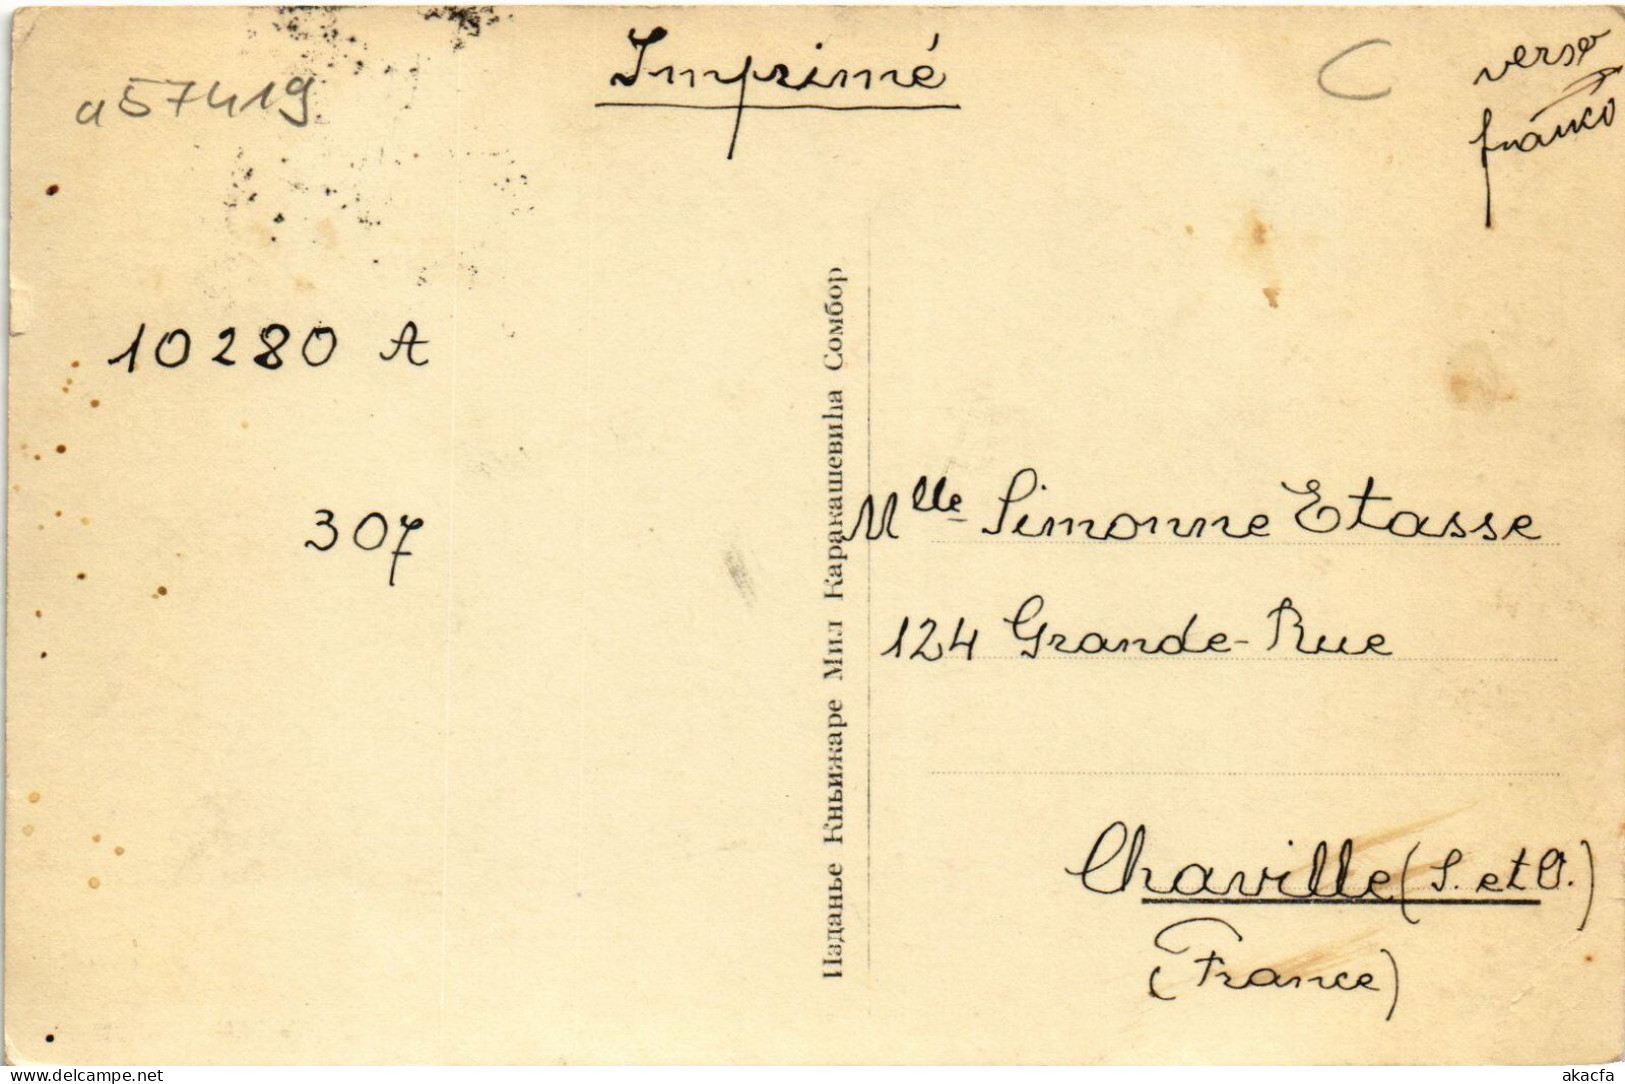 a57419
Imprimé
C
verso
franko
10280 A
307
Издање Књижаре Мил Каракашевића Сомбор
Mlle Simonne Etasse
124 Grande-Rue
Chaville (S. et O.)
(France)
delcampe.net
akacfa